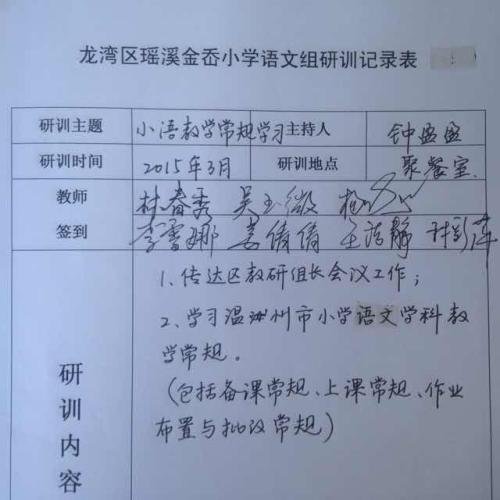 龙湾区瑶溪金岙小学语文组研训记录表
研训主题 小语教学常规学习 主持人 钟盛盛
研训时间 2015年3月 研训地点 聚餐室
教师 林春秀 吴玉微
签到 李雪娜 姜倩倩 王浩静
1、传达区教研组长会议工作；
2、学习温州市小学语文学科教
学常规。
（包括备课常规、上课常规、作业
布置与批改常规）
研训内容